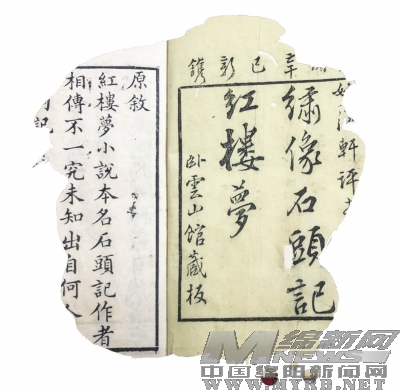 辛巳新鐫
軒評
繡像石頭記
紅樓夢
卧雲山館藏板
原敘
紅樓夢小說本名石頭記作者
相傳不一究未知出自何人
绵新网
NEWS
中国绵阳新闻网